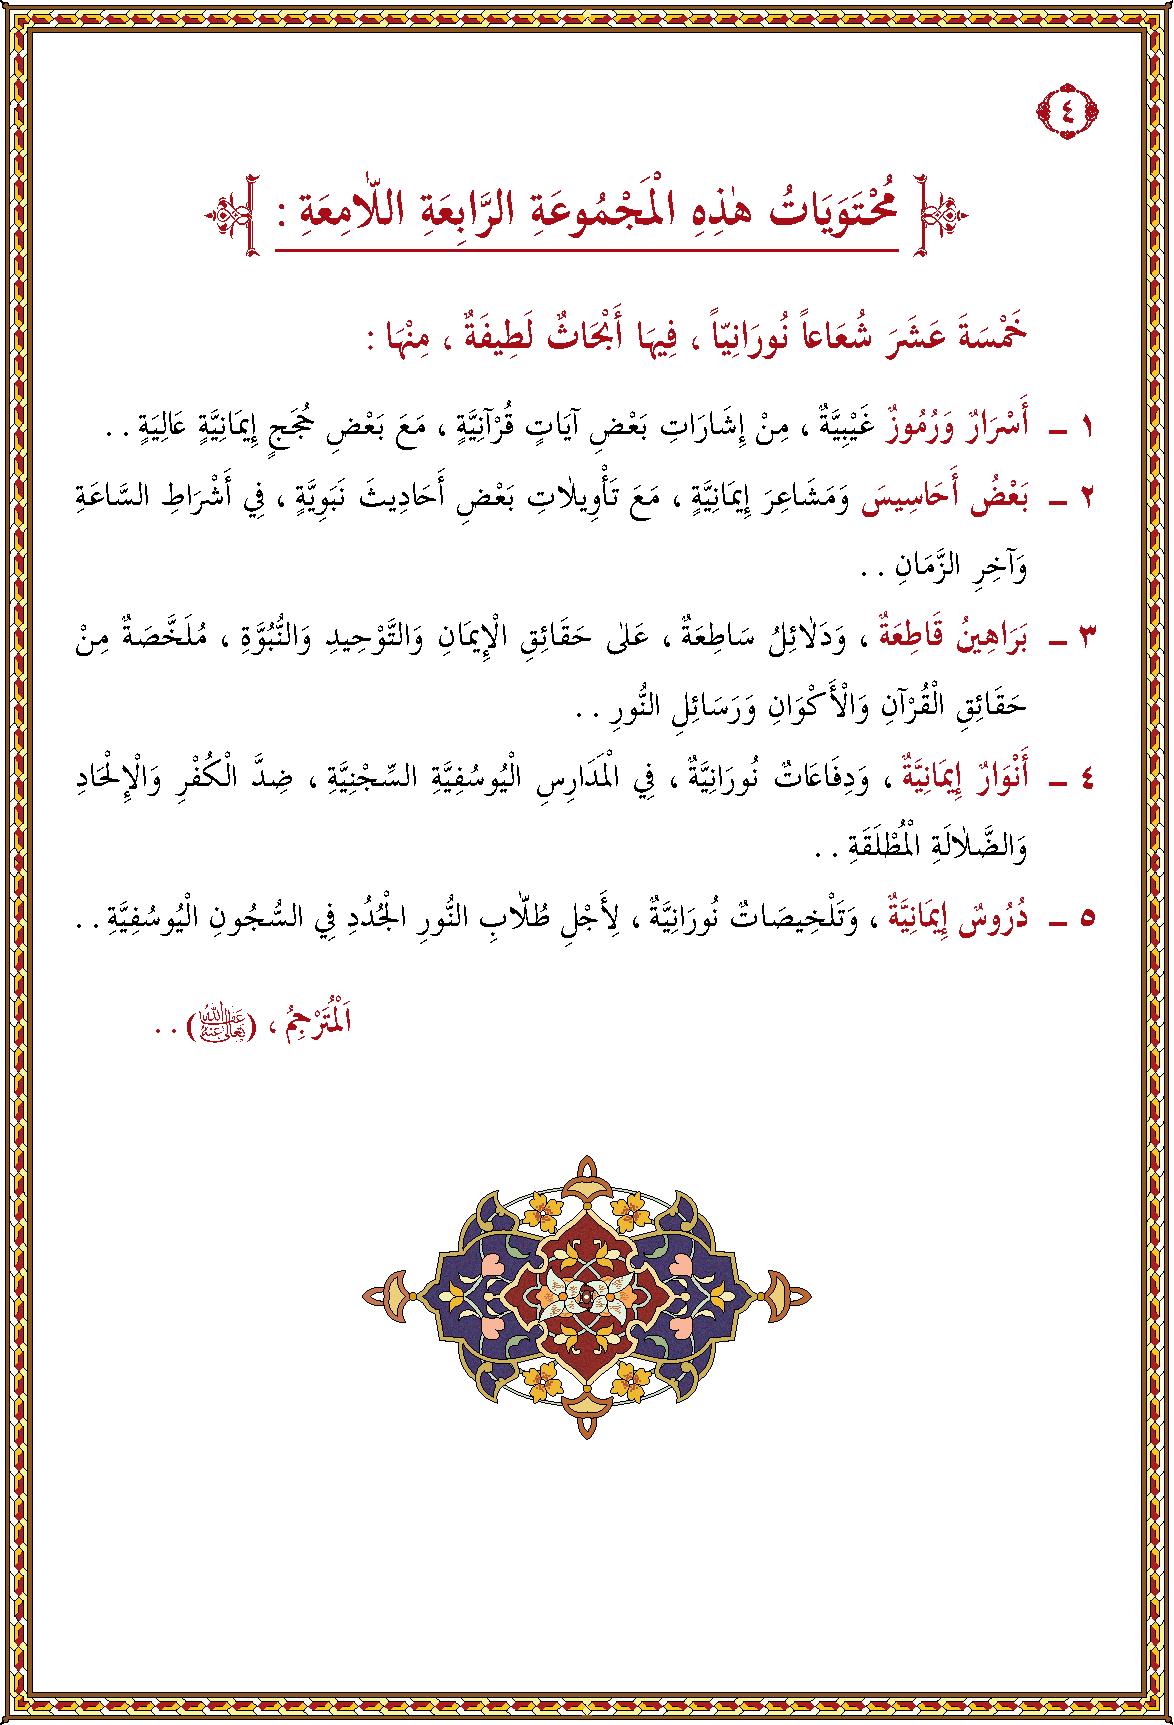 ٤
مُحْتَوَيَاتُ هٰذِهِ الْمَجْمُوعَةِ الرَّابِعَةِ اللّٰامِعَةِ :
خَمْسَةَ عَشَرَ شُعَاعاً نُورَانِيّاً ، فِيهَا أَبْحَاثٌ لَطِيفَةٌ ، مِنْهَا :
١ ـ أَسْرَارٌ وَرُمُوزٌ غَيْبِيَّةٌ ، مِنْ إِشَارَاتِ بَعْضِ آيَاتٍ قُرْآنِيَّةٍ ، مَعَ بَعْضِ حُجَجٍ إِيمَانِيَّةٍ عَالِيَةٍ . .
٢ ـ بَعْضُ أَحَاسِيسَ وَمَشَاعِرَ إِيمَانِيَّةٍ ، مَعَ تَأْوِيلَاتِ بَعْضِ أَحَادِيثَ نَبَوِيَّةٍ ، فِي أَشْرَاطِ السَّاعَةِ
وَآخِرِ الزَّمَانِ . .
٣ ـ بَرَاهِينُ قَاطِعَةٌ ، وَدَلَائِلُ سَاطِعَةٌ ، عَلٰى حَقَائِقِ الْإِيمَانِ وَالتَّوْحِيدِ وَالنُّبُوَّةِ ، مُلَخَّصَةٌ مِنْ
حَقَائِقِ الْقُرْآنِ وَالْأَكْوَانِ وَرَسَائِلِ النُّورِ . .
٤ ـ أَنْوَارٌ إِيمَانِيَّةٌ ، وَدِفَاعَاتٌ نُورَانِيَّةٌ ، فِي الْمَدَارِسِ الْيُوسُفِيَّةِ السِّجْنِيَّةِ ، ضِدَّ الْكُفْرِ وَالْإِلْحَادِ
وَالضَّلَالَةِ الْمُطْلَقَةِ . .
٥ ـ دُرُوسٌ إِيمَانِيَّةٌ ، وَتَلْخِيصَاتٌ نُورَانِيَّةٌ ، لِأَجْلِ طُلَّابِ النُّورِ الْجُدُدِ فِي السُّجُونِ الْيُوسُفِيَّةِ . .
اَلْمُتَرْجِمُ ، (عَفَا اللّٰهُ تَعَالٰى عَنْهُ) . .